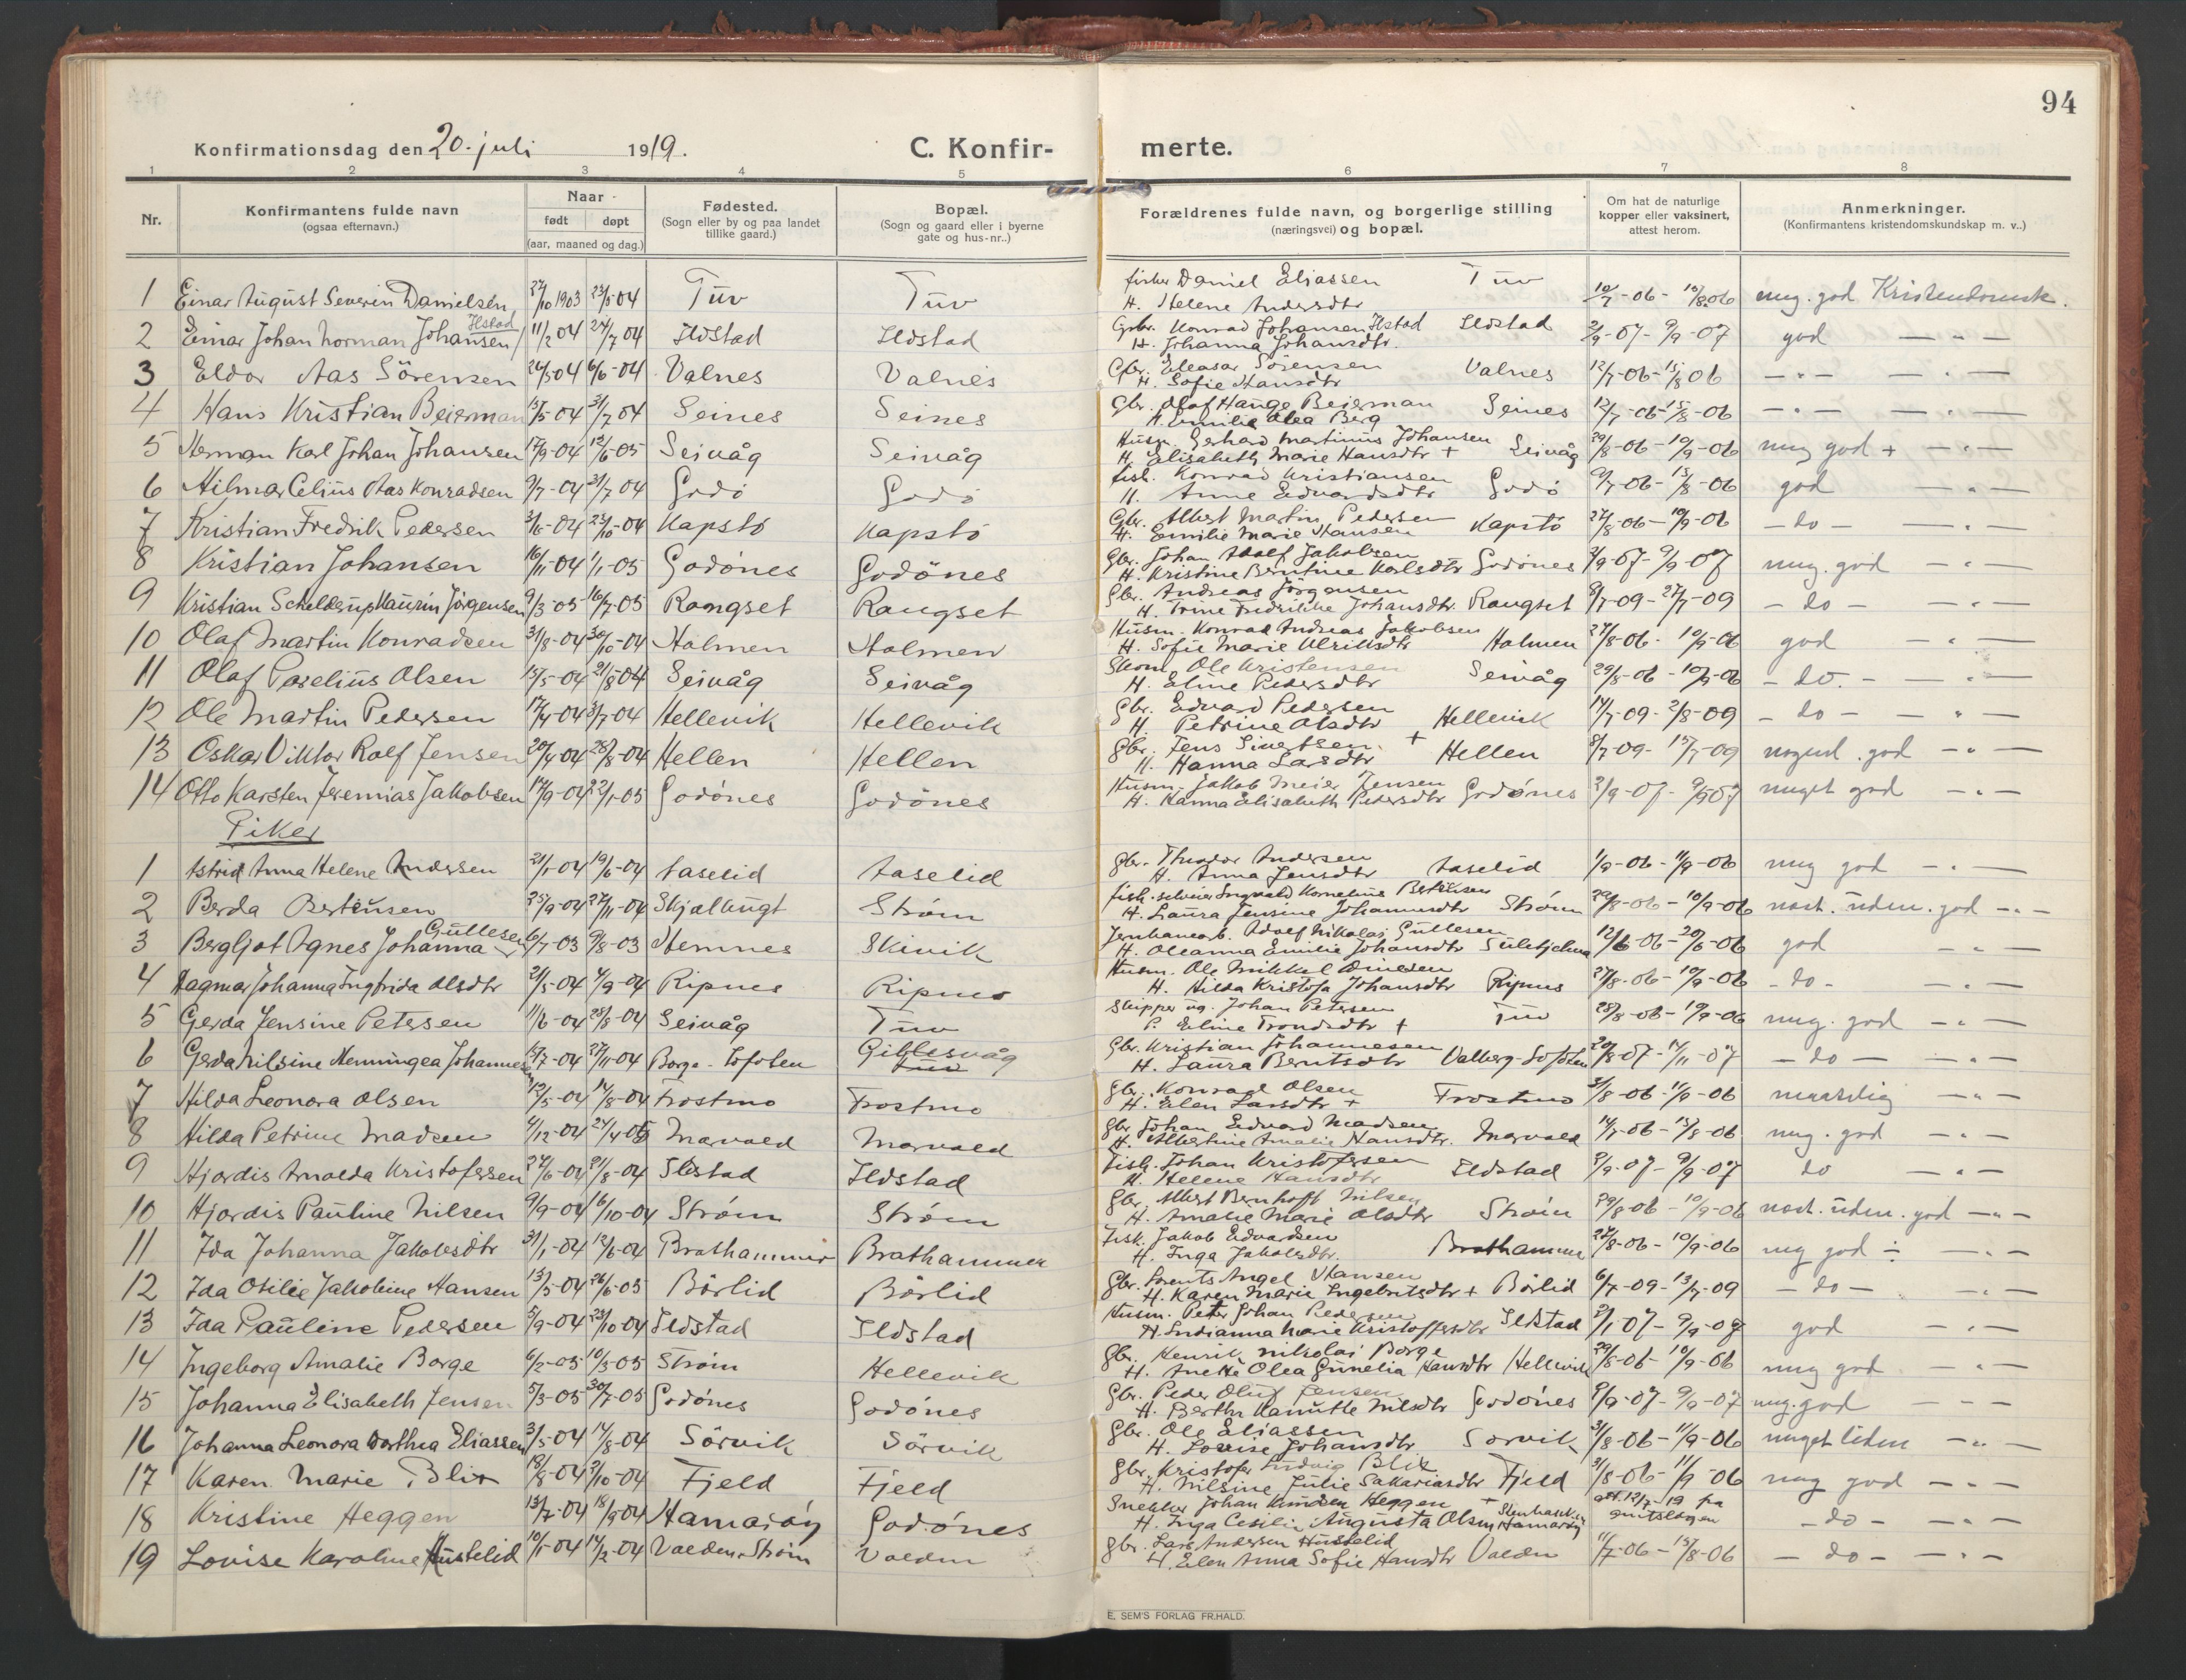 94
Konfirmationsdag den 20. juli 1919.
C. Konfir- merte.
1 2 3 4 5 6 7 8
Nr.
Konfirmantens fulde navn
(ogsaa efternavn.)
Naar
født døpt
(aar, maaned og dag.)
Fødested.
(Sogn eller by og paa landet
tillike gaard.)
Bopæl.
(Sogn og gaard eller i byerne
gate og hus-nr..)
Forældrenes fulde navn, og borgerlige stilling
(næringsvei) og bopæl.
Om hat de naturlige
kopper eller vaksinert,
attest herom.
Anmerkninger.
(Konfirmantens kristendomskundskap m. v..)
1 Einar August Severin Danielsen 27/10 1903 23/5-04 Tuv Tuv fisker Daniel Eliassen Tuv 10/7-06-15/8.06 mug. god Kristendomsk.
H. Helene Andersdtr
2 Einar Johan Norman Johansen/ Ilstad 11/2 04 24/7 04 Ildstad Ildstad Gbr. Konrad Johansen Ilstad Ildstad 2/9-07-9/9-07 god — " —
H. Johanna Johansdtr.
3 Eldor Aas Sörensen 24/5 04 6/6-04 Valnes Valnes Gbr. Eleasar Sörensen Valnes 12/7-06-15/8 06 — " — — " —
H. Sofie Hansdtr
4 Hans Kristian Beierman 13/5-04 31/7 04 Seines Seines Gbr. Olaf Hauge Beierman Seines 12/7-06-15/8-06 — " — — " —
H. Emilie Olea Berg
5 Herman Karl Johan Johansen 17/9-04 12/6-05 Seivåg Seivåg Husm. Gerhard Martinus Johansen Seivåg 29/8-06-10/9-06 mug god + — " —
H. Elisabeth Marie Hansdtr +
6 Hilmar Celius Aas Konradsen 9/7-04 31/7 04 Godö Godö fisk. Konrad Kristiansen Godö 9/7-06-15/8-06 god — " —
H. Anne Edvardsdtr
7 Kristian Fredrik Pedersen 3/6-04 23/10-04 Kapstö Kapstö Gbr. Albert Martin Pedersen Kapstö 27/8-06-10/9-06 — do — — " —
H. Emilie Marie Hansen
8 Kristian Johansen 16/11-04 1/1-05 Godönes Godönes Gbr. Johan Adolf Jakobsen Godönes 2/9-07-9/9-07 mug. god — " —
H. Kristine Berntine Karlsdtr
9 Kristian Schelderup Kaurin Jörgensen 9/3-05 16/7-05 Rongset Rangset Gbr. Andreas Jörgensen Rangset 8/7-09-27/7-09 — do — — " —
H. Trine Fredrikke Johansdtr.
10 Olaf Martin Konradsen 31/8-04 30/10-04 Holmen Holmen Husm. Konrad Andreas Jakobsen Holmen 27/8-06-10/9-06 god — " —
H. Sofie Marie Ulriksdtr
11 Olaf Paselius Olsen 15/5-04 21/8 04 Seivåg Seivåg Ole Kristensen Seivåg 29/8-06-10/9-06 — do. — — " —
H. Eline Pedersdtr
12 Ole Martin Pedersen 17/4-04 3/7-04 Hellevik Hellevik Gbr. Edvard Pedersen Hellevik 14/7-09-2/8-09 — do — — " —
H. Petrine Olsdtr
13 Oskar Viktor Rolf Jensen 20/4-04 28/8-04 Hellen Hellen Gbr. Jens Sivertsen. + Hellen 8/7-09-15/7-09 god — " —
H. Hanna Larsdtr
14 Otto Karsten Jeremias Jakobsen 17/9-04 22/1-05 Godönes Godönes Husm. Jakob Meier Jensen Godönes 2/9-07-9/9 07 muget god — " —
H. Hanna Elisabeth Pedersdtr
Piker
1 Astrid Anna Helene Andersen 21/1-04 19/6-04 Aaselid Aaselid Gbr. Theodor Andersen Aaselid 1/9-06-11/9-06 mug god — " —
H. Anna Jensdtr
2 Berda Bertéusen 25/9-04 27/11-04 Skjælbugt Ström fisk. Ingvald Kornelius Bertéusen Ström 29/8-06-10/9-06 uden. god — " —
H. Laura Jensine Johannesdtr
3 Bergljot Agnes Johanna Gullesen 6/7-03 9/8-03 Hemnes Skivik Jernbanearb. Adolf Nikolai Gullesen Sulitjelma 12/6-06-20/6-06 god — " —
H. Oleanna Emilie Johansdtr
4 Dagmar Johanna Ingfrida Olsdtr 21/5-04 4/9-04 Ripnes Ripnes Husm. Ole Mikkel Dinesen Ripnes 27/8-06-10/9-06 — do — — " —
H. Hilda Kristofa Johansdtr
5 Gerda Jensine Petersen 11/6-04 28/8-04 Seivåg Tuv Skipper ug. Johan Petersen Tuv 28/8-06-10/9-06 mug. god — " —
P. Eline Trondsdtr +
6 Gerda Nilsine Henningea Johannesen 15/7-04 27/11-04 Borge - Lofoten Gillesvåg Tuv Gbr. Kristian Johannesen Valberg-Lofoten 20/8-07-14/11-07 — do — — " —
H. Laura Berntsdtr
7 Hilda Leonora Olsen 12/5-04 14/8-04 Frostmo Frostmo Gbr. Konrad Olsen Frostmo 3/8-06-11/9-06 maadelig — " —
H. Elen Larsdtr +
8 Hilda Petrine Madsen 4/12-04 24/4-05 Marvold Marvold Gbr Johan Edvard Madsen Marvold 14/7-06-15/8-06 mug. god — " —
H. Albertine Amalie Hansdtr.
9 Hjordis Arnolda Kristofersen 27/6-04 21/8-04 Ildstad Ildstad Fisk. Johan Kristofersen Ildstad 2/9-07-9/9-07 do — " —
H. Helene Hansdtr
10 Hjordis Pauline Nilsen 9/9-04 16/10-04 Ström Ström Gbr. Albert Bernhoft Nilsen Ström 29/8-06-10/9-06 uden. god — " —
H. Amalie Marie Olsdtr
11 Ida Johanna Jakobsdtr 31/1-04 12/6-04 Brathammer Brathammer Fisk. Jakob Edvardsen Brathammer 28/8-06-10/9-06 mg god ÷ — " —
H. Inga Jakobsdtr.
12 Ida Otilie Jakobine Hansen 13/5-04 26/6-05 Börlid Börlid Gbr. Lorents Angel Hansen Börlid 6/7-09-13/7-09 — do — — " —
H. Karen Marie Ingebrigtsdtr +
13 Ida Pauline Pedersen 5/9-04 23/10-04 Ildstad Ildstad Husm. Peter Johan Pedersen Ildstad 2/1-07-9/9-07 god — " —
H. Indianna Marie Kristoffersdtr
14 Ingeborg Amalie Borge 6/2-05 10/3-05 Ström Hellevik Gbr. Henrik Nikolai Borge Hellevik 29/8-06-10/9-06 mug god — " —
H. Anette Olea Gunelia Hansdtr
15 Johanna Elisabeth Jensen 5/3-05 30/7-05 Godönes Godönes Gbr. Peder Oluf Jensen Godönes 2/9-07-9/9-07 mug. god — - —
H. Berthe Hanutte Nilsdtr
16 Johanna Leonora Dorthea Eliassen 3/5-04 14/8-04 Sörvik Sörvik Gbr. Ole Eliassen Sörvik 31/8-06-11/9-06 muget liden — " —
H. Lovise Johansdtr
17 Karen Marie Blix 18/8-04 2/10-04 Fjeld Fjeld Gbr. Kristofer Ludvig Blix Fjeld 31/8-06-11/9-06 mug god — " —
H. Nilsine Julie Sakariasdtr
18 Kristine Heggen 13/7-04 18/9 04 Hamaröy Godönes Snekker Johan Knudsen Heggen + Hamaröy att. 12/7-19 fra — do — — " —
H. Inga Cesilie Augusta Olsen
19 Lovise Karoline Hustelid 10/1-04 14/2-04 Valden, Ström Valden Gbr. Lars Andersen Hustelid Valden 11/7-06-15/8-06 — do — — " —
H. Elen Anna Sofie Hansdtr
E. SEM'S FORLAG FR.HALD.